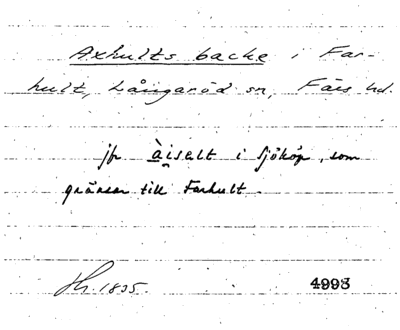 Axhults backe i Far-
hult, Långaröd sn, Färs hd.
jfr àiselt i Sjököp, som
gränsar till Farhult.
Hr. 1835.
4993